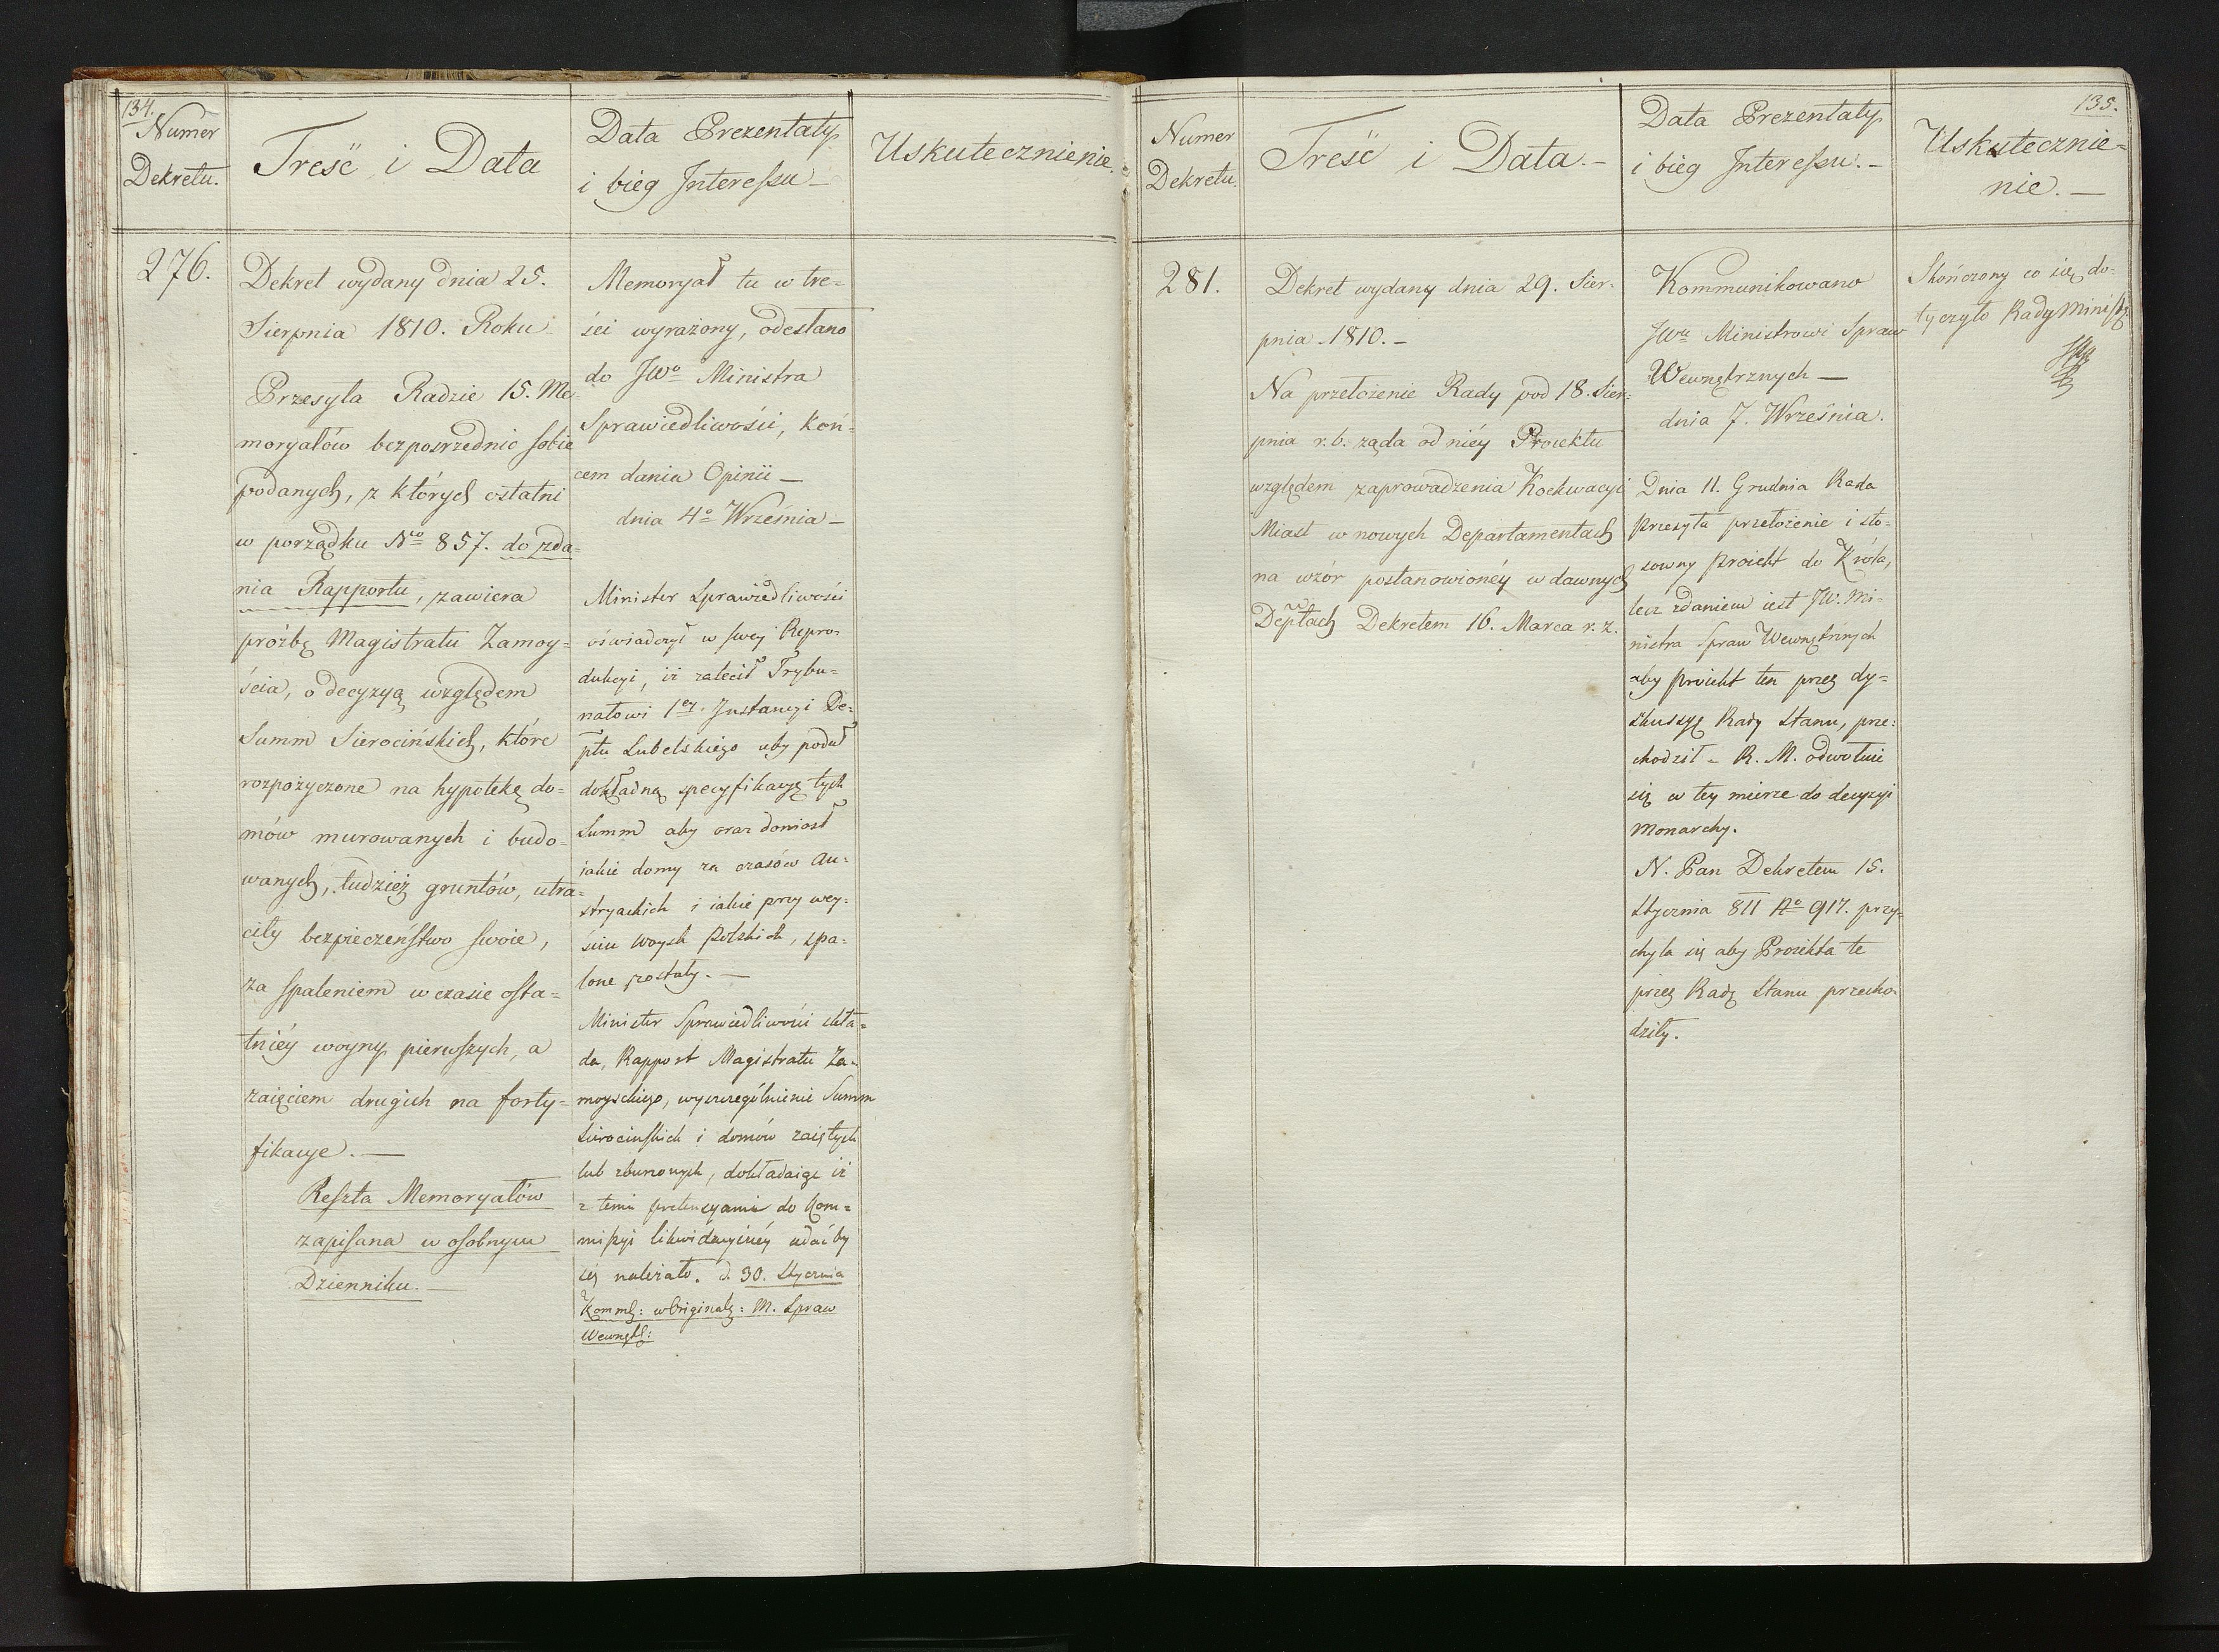 134.
Numer
Dekretu.
Treść i Data
Data Prezentaty
i bieg Interessu —
Uskutecznienie.
276.
Dekret wydany dnia 25.
Sierpnia 1810. Roku
Przesyła Radzie 15. Me-
moryałów bezpośrzednio sobie
podanych, z których ostatni
w porządku Nro 857. do zda=
nia Rapportu, zawiera
prożbę Magistratu Zamoy=
ścia, o decyzyą względem
Summ Sierocińskich, które
rozpożyczone na hypotekę do=
mów murowanych i budo=
wanych, tudzież gruntów, utra=
ciły bezpieczeństwo swoie,
za spaleniem w czasie osta=
tniéy woyny pierwszych, a
zaięciem drugich na forty=
fikacye. —
Reszta Memoryałów
zapisana w osobnym
Dzienniku. —
Memoryał tu w tre=
ści wyrażony, odesłano
do JWo Ministra
Sprawiedliwości, koń=
cem dania Opinii —
dnia 4o Września —
Minister Sprawiedliwości
oświadczył w swey Repro=
dukcyi, iż zalecił Trybu=
nałowi 1ey Instancyi De=
ptu Lubelskiego aby podał
dokładną specyfikacyę tych
Summ aby oraz doniosł
iakie domy za czasów Au=
stryackich i iakie przy wey=
ściu woysk Polskich, spa=
lone zostały. —
Minister Sprawiedliwości skła=
da, Rapport Magistratu Za=
moyskiego, wyszczególnienie Summ
Sierocinskich i domów zaiętych
lub zburzonych, dokładaiąc iż
z temi pretensyami do Kom=
missyi likwidacyinéy udać by
się należało. d. 30. Stycznia
Kommk: w Originale: M. Spraw
Wewnętr:
135.
Numer
Dekretu.
Treść i Data. —
Data Prezentaty
i bieg Interessu. —
Uskutecznie=
nie. —
281.
Dekret wydany dnia 29. Sier=
pnia 1810. —
Na przełożenie Rady pod 18. Sier=
pnia r. b. ząda od niéy Proiektu
względem zaprowadzenia Koekwacyi
Miast w nowych Departamentach
na wzór postanowionéy w dawnych
Deptach Dekretem 16. Marca r. z.
Kommunikowano
JWu Ministrowi Spraw
Wewnętrznych —
dnia 7. Września.
Dnia 11. Grudnia Rada
Przesyła przełożenie i sto=
sowny proiekt do Króla,
lecz zdaniem iest JW. Mi=
nistra Spraw Wewnętrznych
aby proiekt ten przez dy=
skussyę Rady Stanu, prze=
chodził — R. M. odwołuie
się w tey mierze do decyzyi
Monarchy.
N. Pan Dekretem 15.
Stycznia 811 No 917. przy=
chyla się aby Proiekta te
przez Radę Stanu przecho=
dziły.
Skończony co się do=
tyczyło Rady Minist